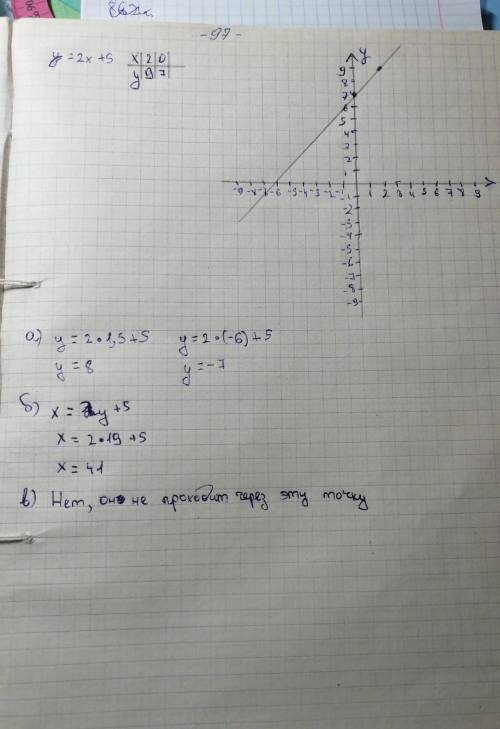 -97-
y = 2x + 5 x 2 0
y 9 7
y
9
8
7
6
5
4
3
2
1
-9 -8 -7 -6 -5 -4 -3 -2 -1 1 2 3 4 5 6 7 8 9
-1
-2
-3
-4
-5
-6
-7
-8
-9
а) y = 2 • 1,5 + 5 y = 2 • (-6) + 5
y = 8 y = -7
б) x = 2y + 5
x = 2 • 19 + 5
x = 41
в) Нет, оно не проходит через эту точку